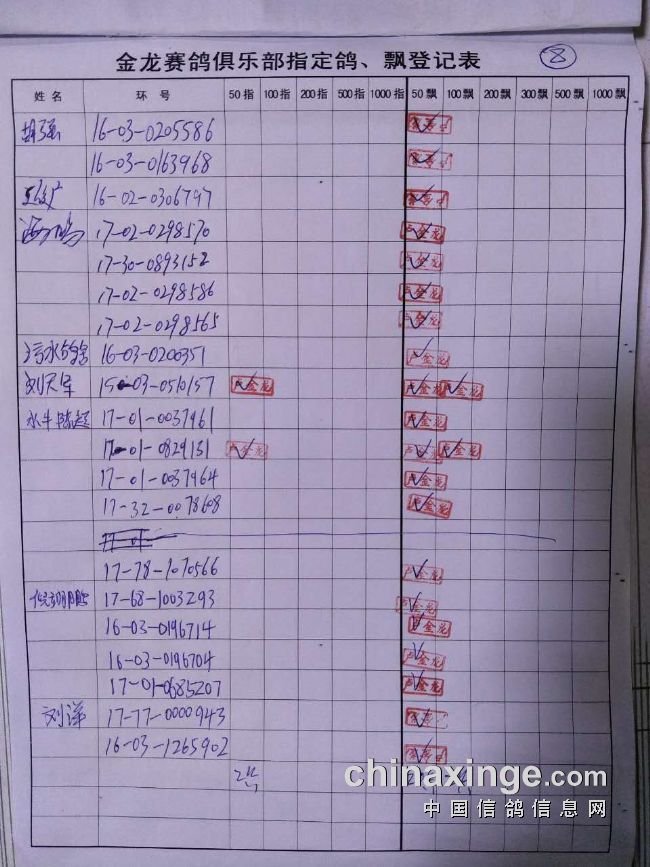 金龙赛鸽俱乐部指定鸽、飘登记表 8
姓名 环号 50指 100指 200指 500指 1000指 50飘 100飘 200飘 300飘 500飘 1000飘
胡强 16-03-0205586
16-03-0163968
16-02-0306797
17-02-0298570 卢金龙
17-30-0893152 卢金龙
17-02-0298586 卢金龙
17-02-0298565 卢金龙
16-03-0200351 卢金龙
刘天军 15-03-0510157 卢金龙 卢金龙 卢金龙
水牛陈超 17-01-0037961 卢金龙
17-01-0829131 卢金龙 卢金龙 卢金龙
17-01-0037964 卢金龙
17-32-0078608 卢金龙
17-01-
17-78-1070566 卢金龙
17-68-1003293 卢金龙
16-03-0196714 卢金龙
16-03-0196704 卢金龙
17-01-0685207 卢金龙
刘洋 17-77-0000943
16-03-1265902
chinaxinge.com
中国信鸽信息网